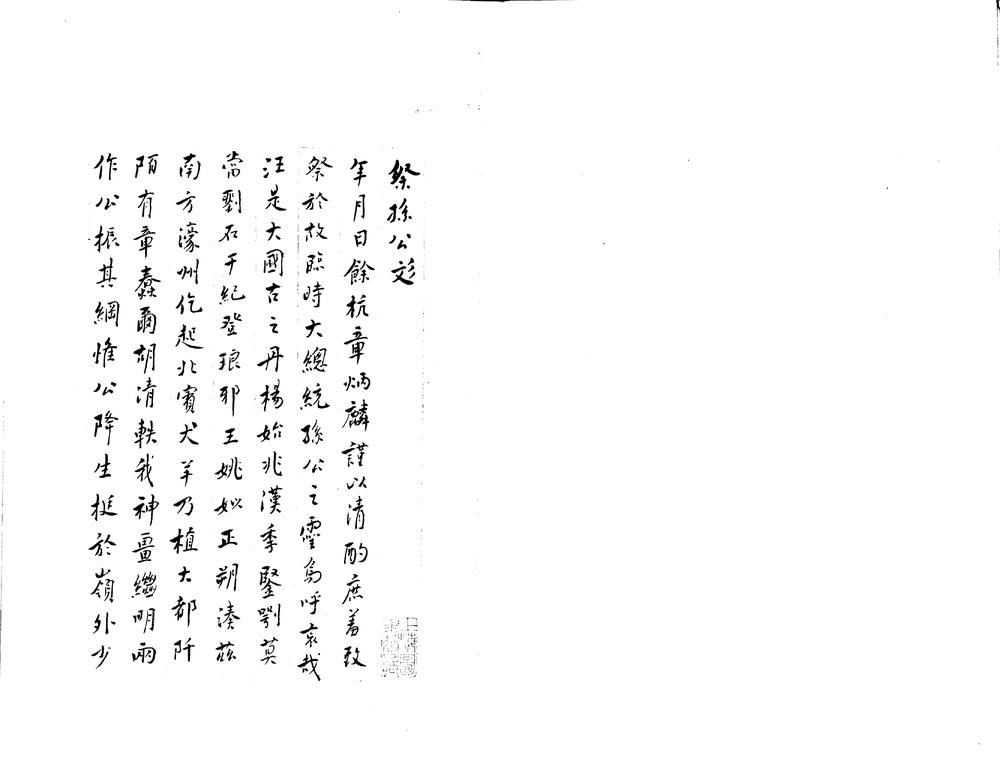 祭孫公文
年月日餘杭章炳麟謹以清酌庶羞致
祭於故臨時大總統孫公之靈烏呼哀哉
汪是大國古之丹楊始兆漢季鑿䣛莫
當劉石干紀登琅邪王姚姒正朔湊茲
南方濠州仡起北賓犬羊乃植大都阡
陌有章蠢爾胡清軼我神畺繼明兩
作公振其綱惟公降生挺於嶺外少